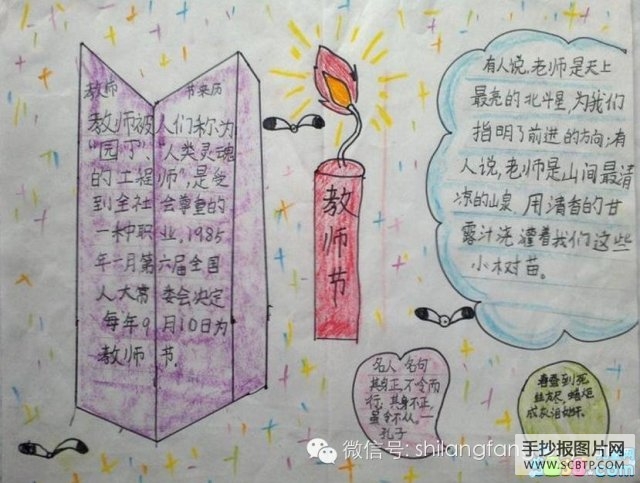 教师节来历
教师被人们称为
"园丁"、"人类灵魂
的工程师",是受
到全社会尊重的
一种职业,1985
年一月第六届全国
人大常委会决定
每年9月10日为
教师节。
教师节
有人说,老师是天上
最亮的北斗星,为我们
指明了前进的方向;有
人说,老师是山间最清
凉的山泉 用清香的甘
露汁浇灌着我们这些
小树苗。
名人名句
其身正,不令而
行,其身不正,
虽令不从。一
孔子
春蚕到死
丝方尽,蜡炬
成灰泪始干.
微信号: shilangfan
手抄报图片网
WWW.SCBTP.COM